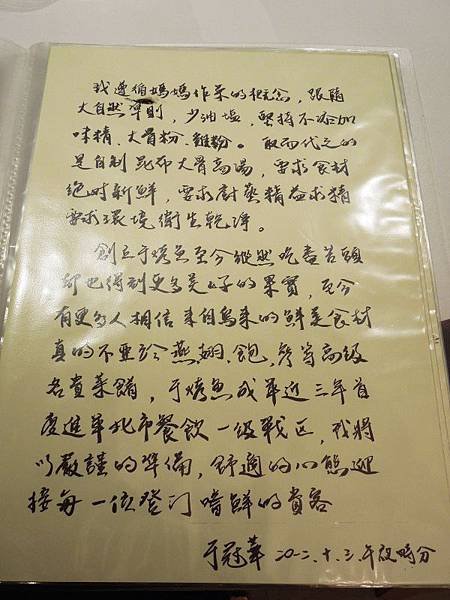 我遵循媽媽作菜的概念，跟隨
大自然準則，少油塩，堅持不添加
味精、大骨粉、雞粉。取而代之的
是自制昆布大骨高湯，要求食材
絕対新鮮，要求廚藝精益求精
要求環境衛生乾淨。
創立于烤魚至今縱然吃盡苦頭
却也得到更多美好的果實，至今
有更多人相信來自烏來的鮮美食材
真的不亞於燕翅、鮑、參等高級
名貴菜餚，于烤魚成軍近三年首
度進軍北市餐飲一級戰区，我將
以嚴謹的準備，舒適的心態迎
接每一位登门嚐鮮的貴客
于冠華 20一二、十、三、午夜時分